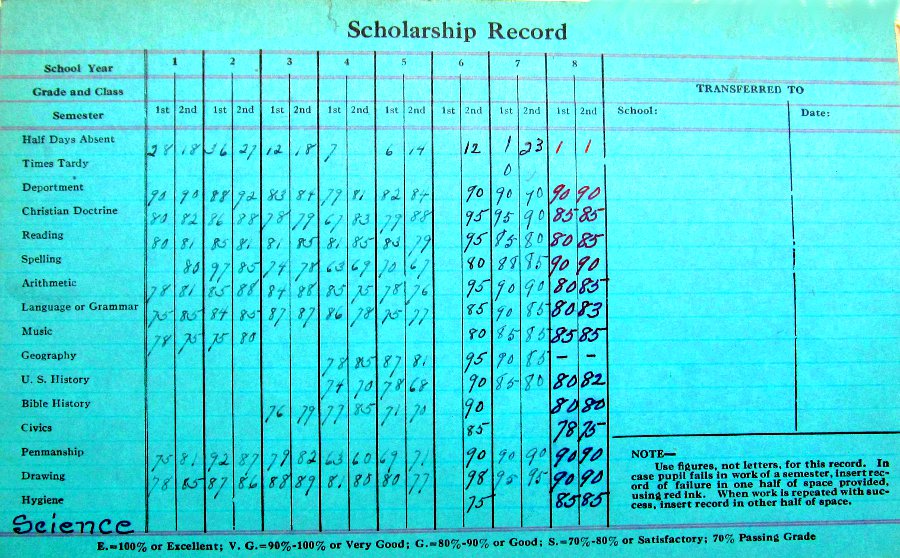 Scholarship Record
School Year 1 2 3 4 5 6 7 8
Grade and Class TRANSFERRED TO
Semester 1st 2nd 1st 2nd 1st 2nd 1st 2nd 1st 2nd 1st 2nd 1st 2nd 1st 2nd School: Date:
Half Days Absent 28 18 36 27 12 18 7 6 14 12 1 23 1 1
Times Tardy 0
Deportment 90 90 88 92 83 84 79 81 82 84 90 90 90 90 90
Christian Doctrine 80 82 86 88 78 79 67 83 79 88 95 95 90 85 85
Reading 80 81 85 81 81 85 81 85 83 79 95 85 80 80 85
Spelling 80 97 85 74 78 63 69 70 67 80 88 85 90 90
Arithmetic 78 81 85 88 84 88 85 75 78 76 95 90 90 80 85
Language or Grammar 75 85 84 85 87 87 86 78 75 77 85 90 85 80 83
Music 78 75 75 80 80 85 85 85 85
Geography 78 85 87 81 95 90 85 – –
U. S. History 74 70 78 68 90 85 80 80 82
Bible History 76 79 77 85 71 70 90 80 80
Civics 85 78 75
Penmanship 75 81 92 87 79 82 63 60 69 71 90 90 90 90 90
Drawing 78 85 87 86 88 89 81 80 80 77 98 95 95 90 90
Hygiene 75 85 85
Science
NOTE—
Use figures, not letters, for this record. In
case pupil fails in work of a semester, insert rec-
ord of failure in one half of space provided,
using red ink. When work is repeated with suc-
cess, insert record in other half of space.
E.=100% or Excellent; V. G.=90%-100% or Very Good; G.=80%-90% or Good; S.=70%-80% or Satisfactory; 70% Passing Grade